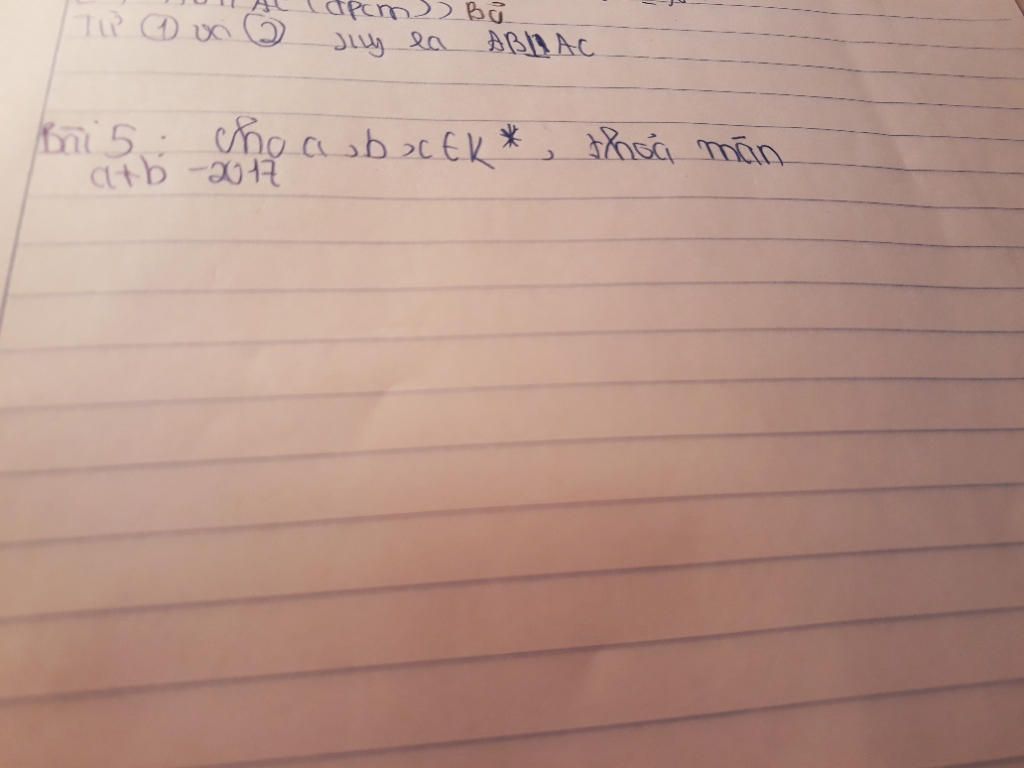 AC (đpcm)) Bũ
Từ ① và ② suy ra AB AC
Bài 5 : Cho a , b , c ∈ K * , thoả mãn
a+b - 2017